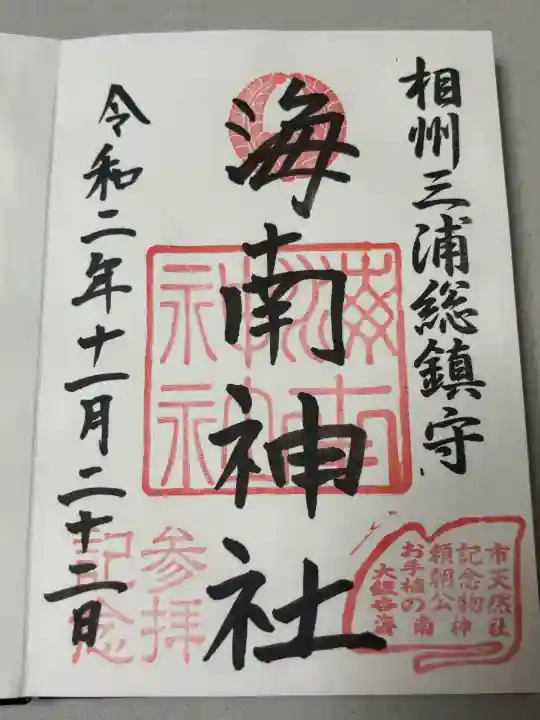 相州三浦総鎮守
海南神社
令和二年十一月二十二日
海南
神社
参拝
記念
市天然
記念物
頼朝公
お手植の
大銀杏
海
南
神
社